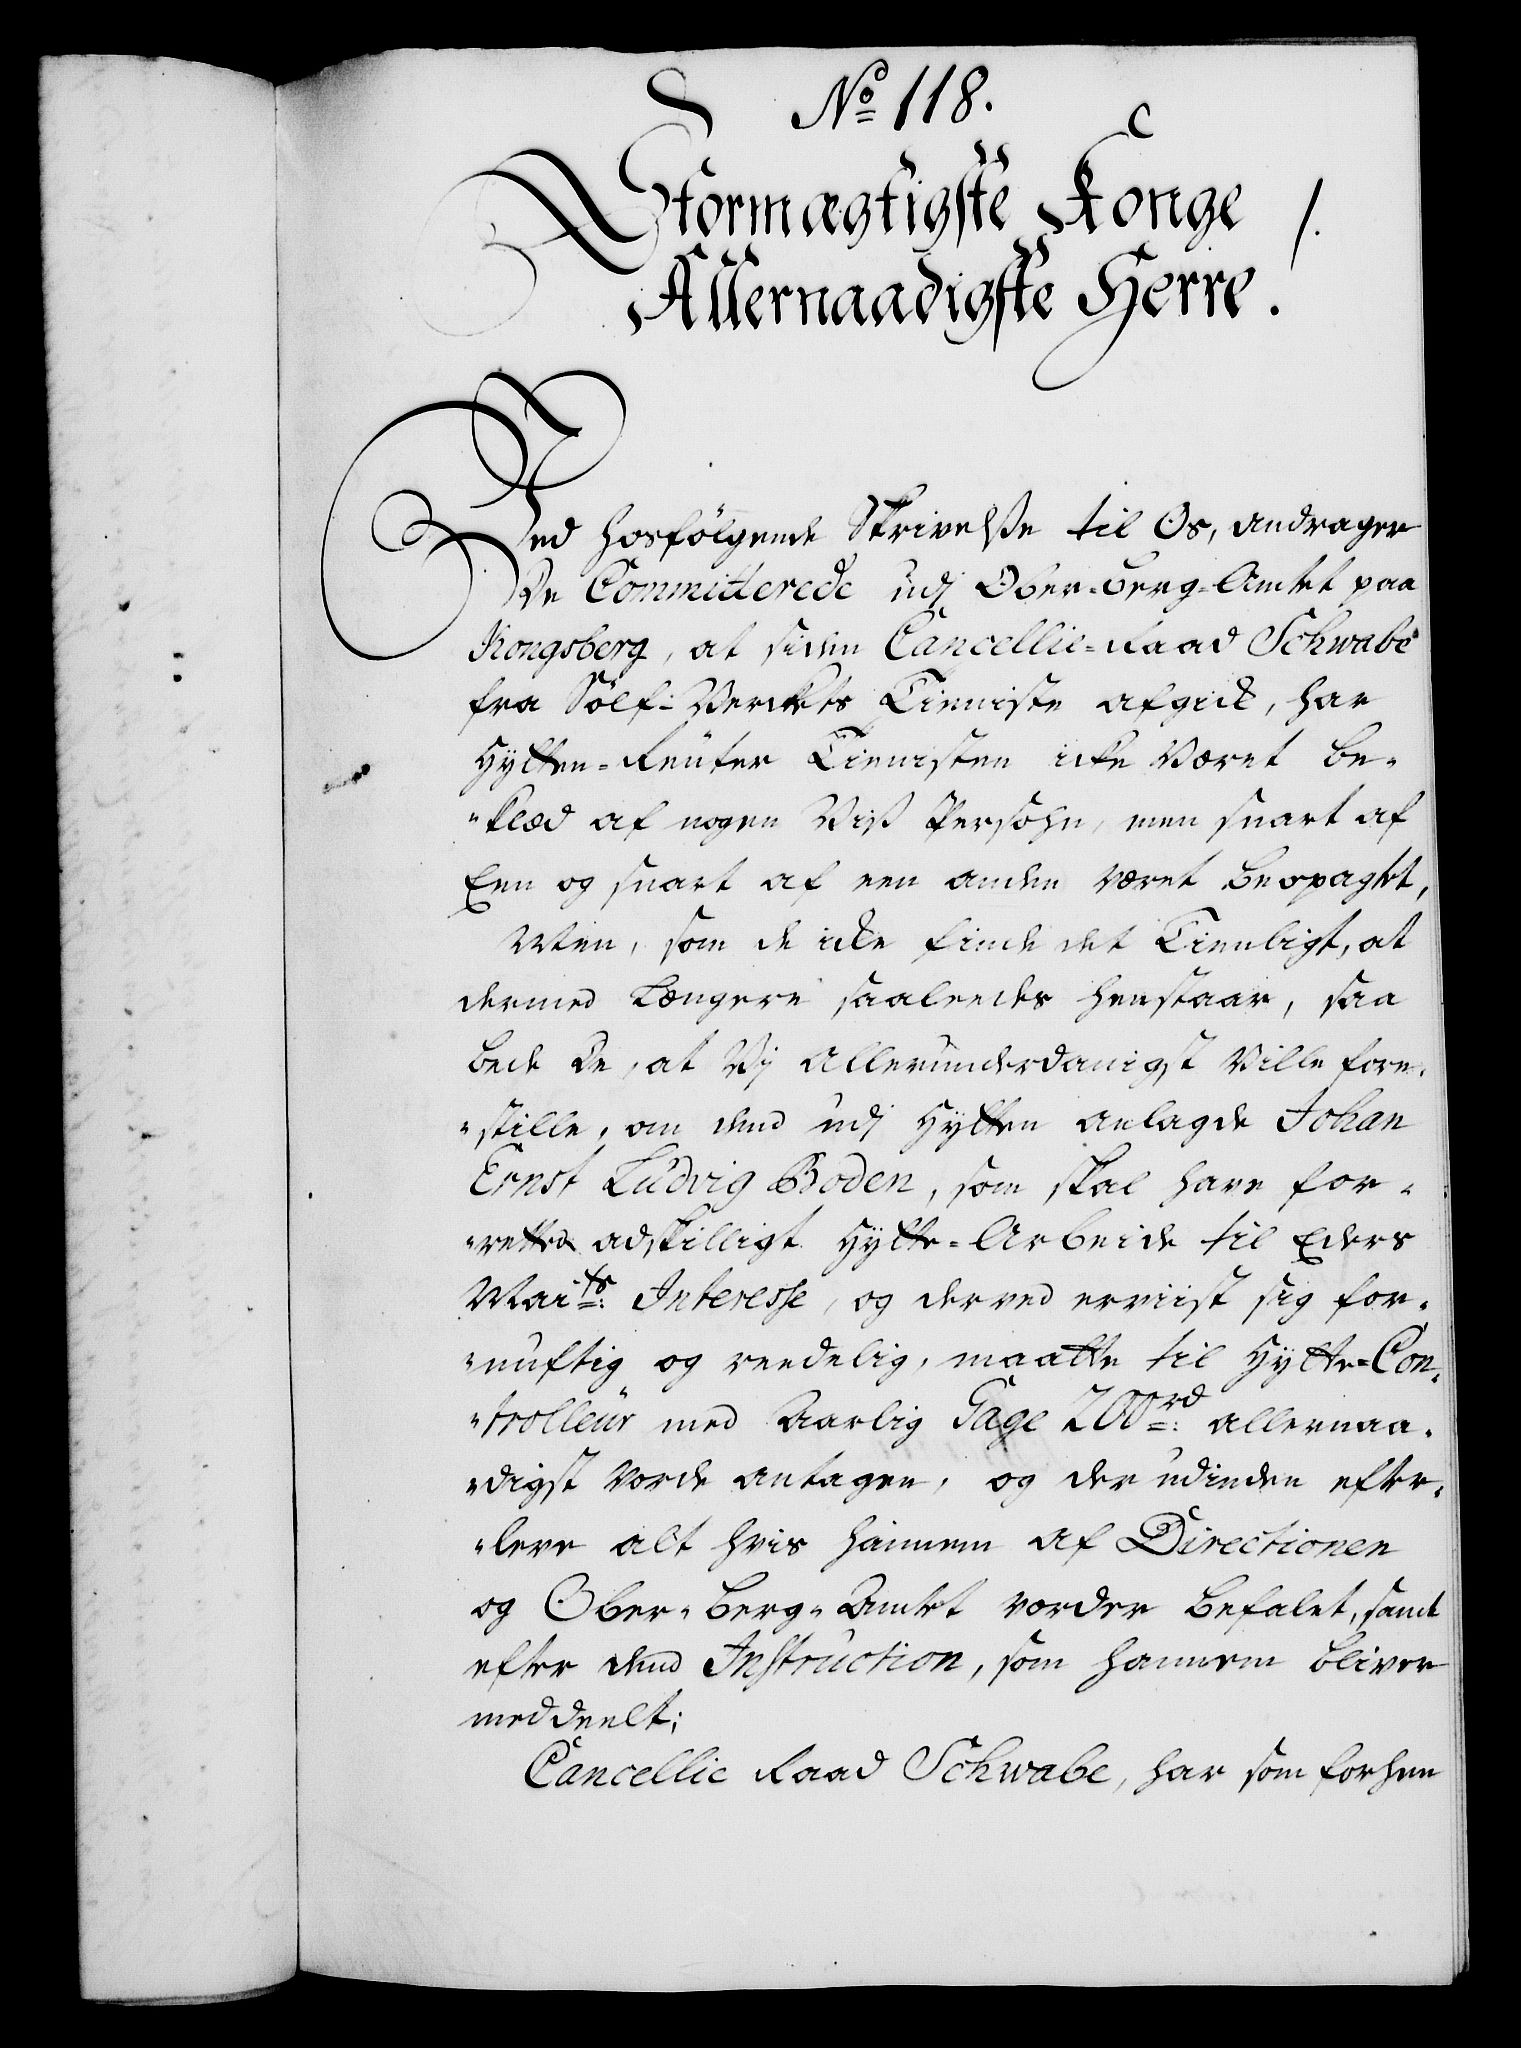 No 118.
Stormægtigste Konge
Allernaadigste Herre.
Ved hosfölgende Skrivelsse til Os, andrager
De Committerede udj Ober-Berg-Amtet paa
Kongsberg, at siden Cancellie-Raad Schwabe
fra Sölf-Verckets Tieniste afgick, har
Hytten-Reuter Tienisten icke Været be-
"klæd af nogen Viss Persohn, men snart af
Een og snart af een anden været beopagtet,
Men, som de icke finde det Tienligt, at
dermed Længere saaleedes henstaar, saa
bede De, at Vj allerunderdanigst Ville fore-
"stille, om dend udj Hytten anlagde Johan
Ernst Ludvig Boden, som skal have for-
"retted adskilligt Hytte-Arbeide til Eders
Maits: Interesse, og derved erviist sig for-
"nuftig og reedelig, maatte til Hytte-Con-
"trolleur med Aarlig Gage 200rd: allernaa-
"digst Vorde antagen, og der udinden efter-
"leve alt hvis hannem af Directionen
og Ober-Berg-Amtet vorder befalet, samt
efter dend Instruction, som hannem bliver
meddeelt;
Cancellie Raad Schwabe, har som forhen